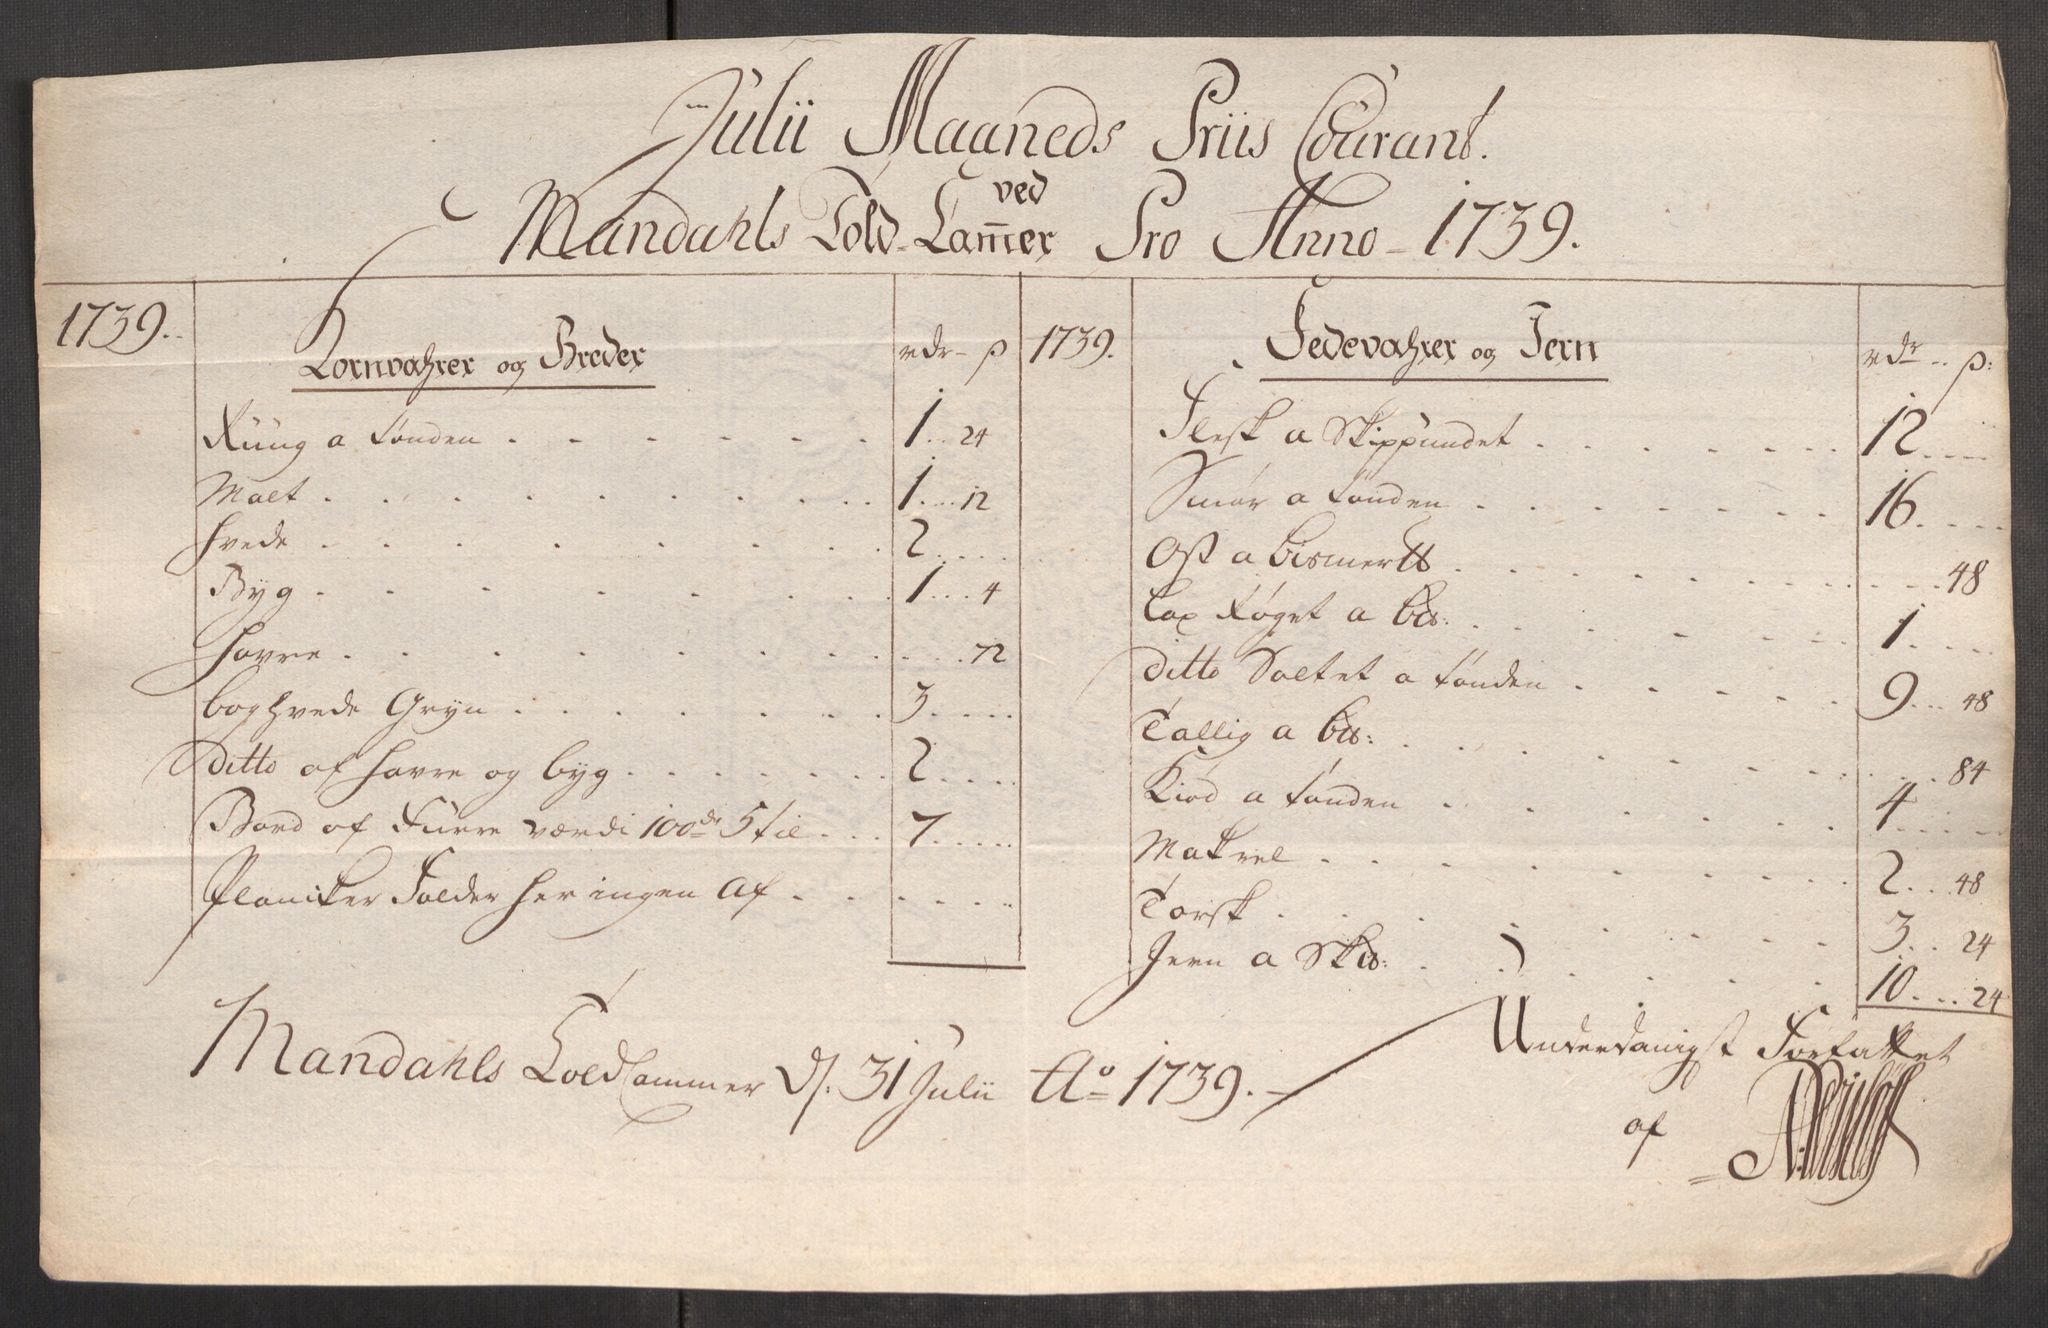 Julii Maaneds Priis Courant.
ved
Mandahls Told-Cam̄er Pro Anno-1739.
1739.
Kornvahrer og Breder
rdr - ß
Rüug a tønden 1. 24
Malt 1. 12
Hvede 2.
Byg 1. 4
Havre 72
boghvede Gryn 3.
Ditto af Havre og byg 2.
Bord af Fürre værdi 100de 5 til 7.
Plancker Falder her ingen Af
1739.
Fedevahrer og Jern
rdr - ß:
Flesk a Skippündet 12
Smør a tønden 16.
Ost a bismer℔ 48
Lax Røget a b℔: 1.
Ditto Saltet a tønden 9. 48
Tallig a b℔: 84
Kiød a tønden 4
Makrel 2. 48
Torsk 3. 24
Jern a Sk℔: 10. 24
Mandahls ToldCammer d. 31 Julii Ao 1739.
Underdanigst Forfattet
af